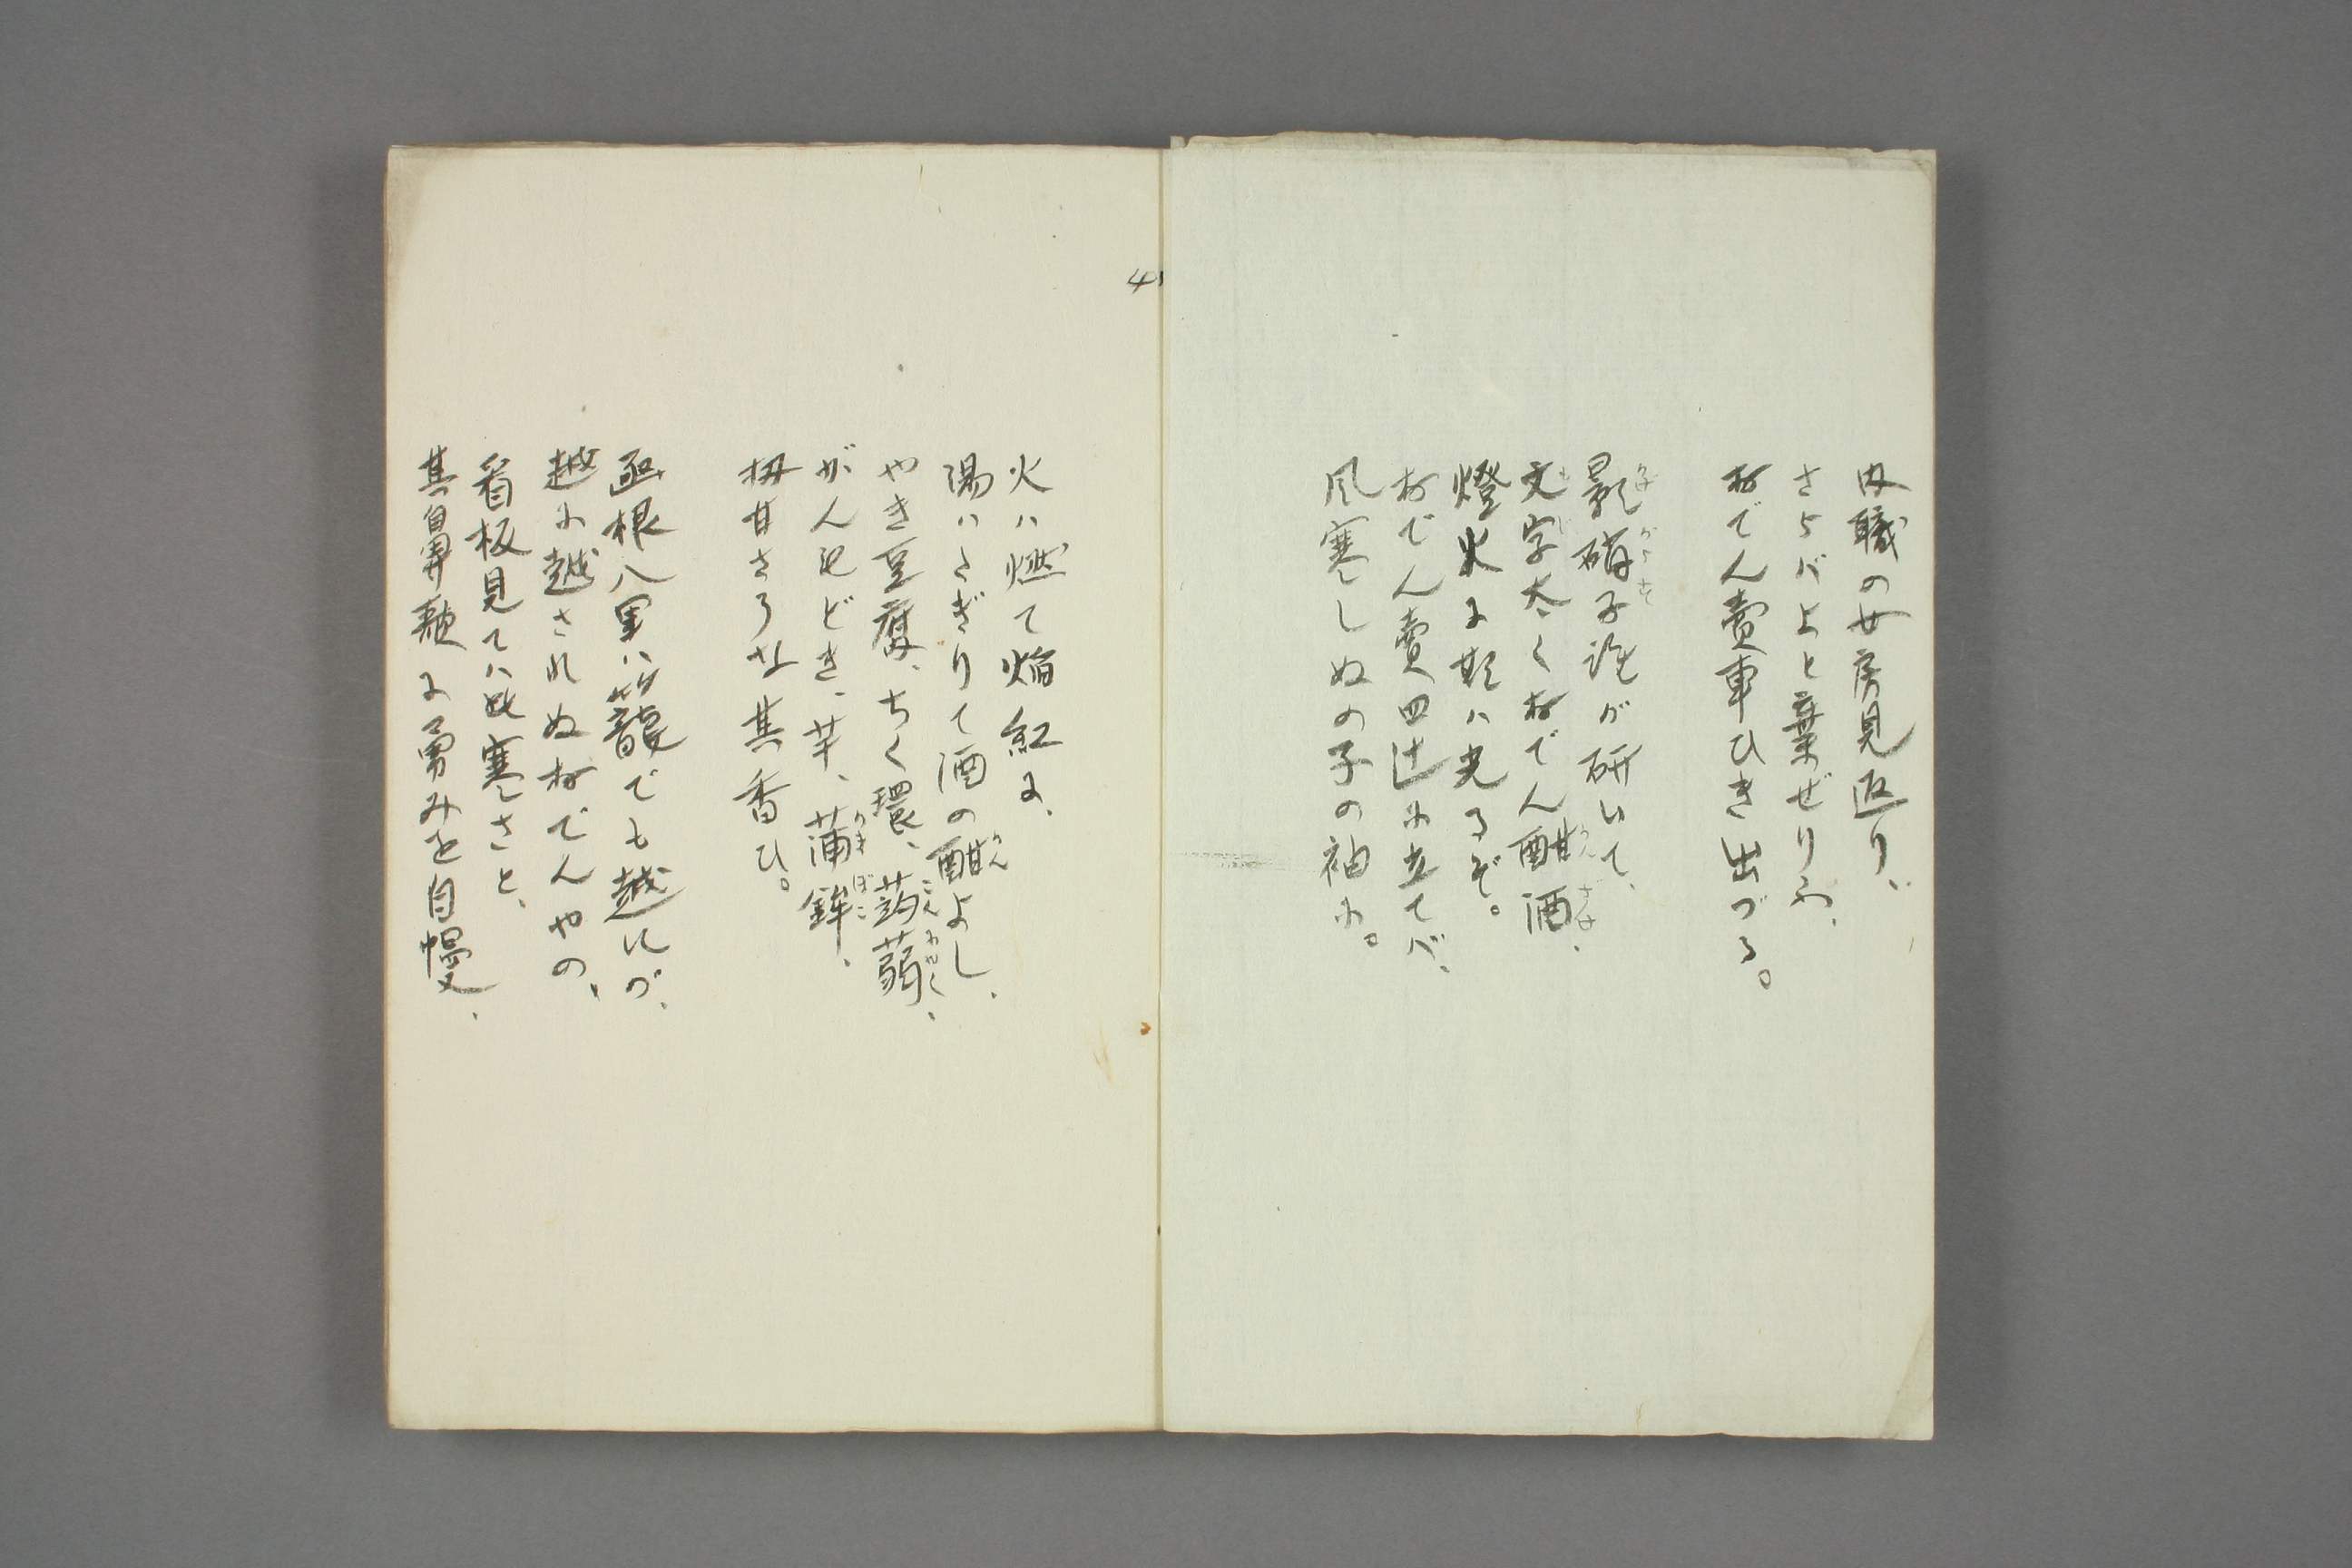 内職の女房見返り、
さらバよと棄ぜりふ、
おでん賣車ひき出づる。
影硝子誰が研いて、
文字太くおでん酣酒、
燈火に龍ハ光るぞ。
おでん賣四辻に立てバ、
風寒しぬの子の袖に。
4
火ハ燃て焔紅に、
湯ハたぎりて酒の酣よし、
やき豆腐、ちく環、蒟蒻、
がんもどき、芋、蒲鉾、
扨甘さうな其香ひ。
函根八里ハ籠でも越にが、
越に越されぬおでんやの、
看板見てハ此寒さと、
其鼻歌に勇みを自慢、